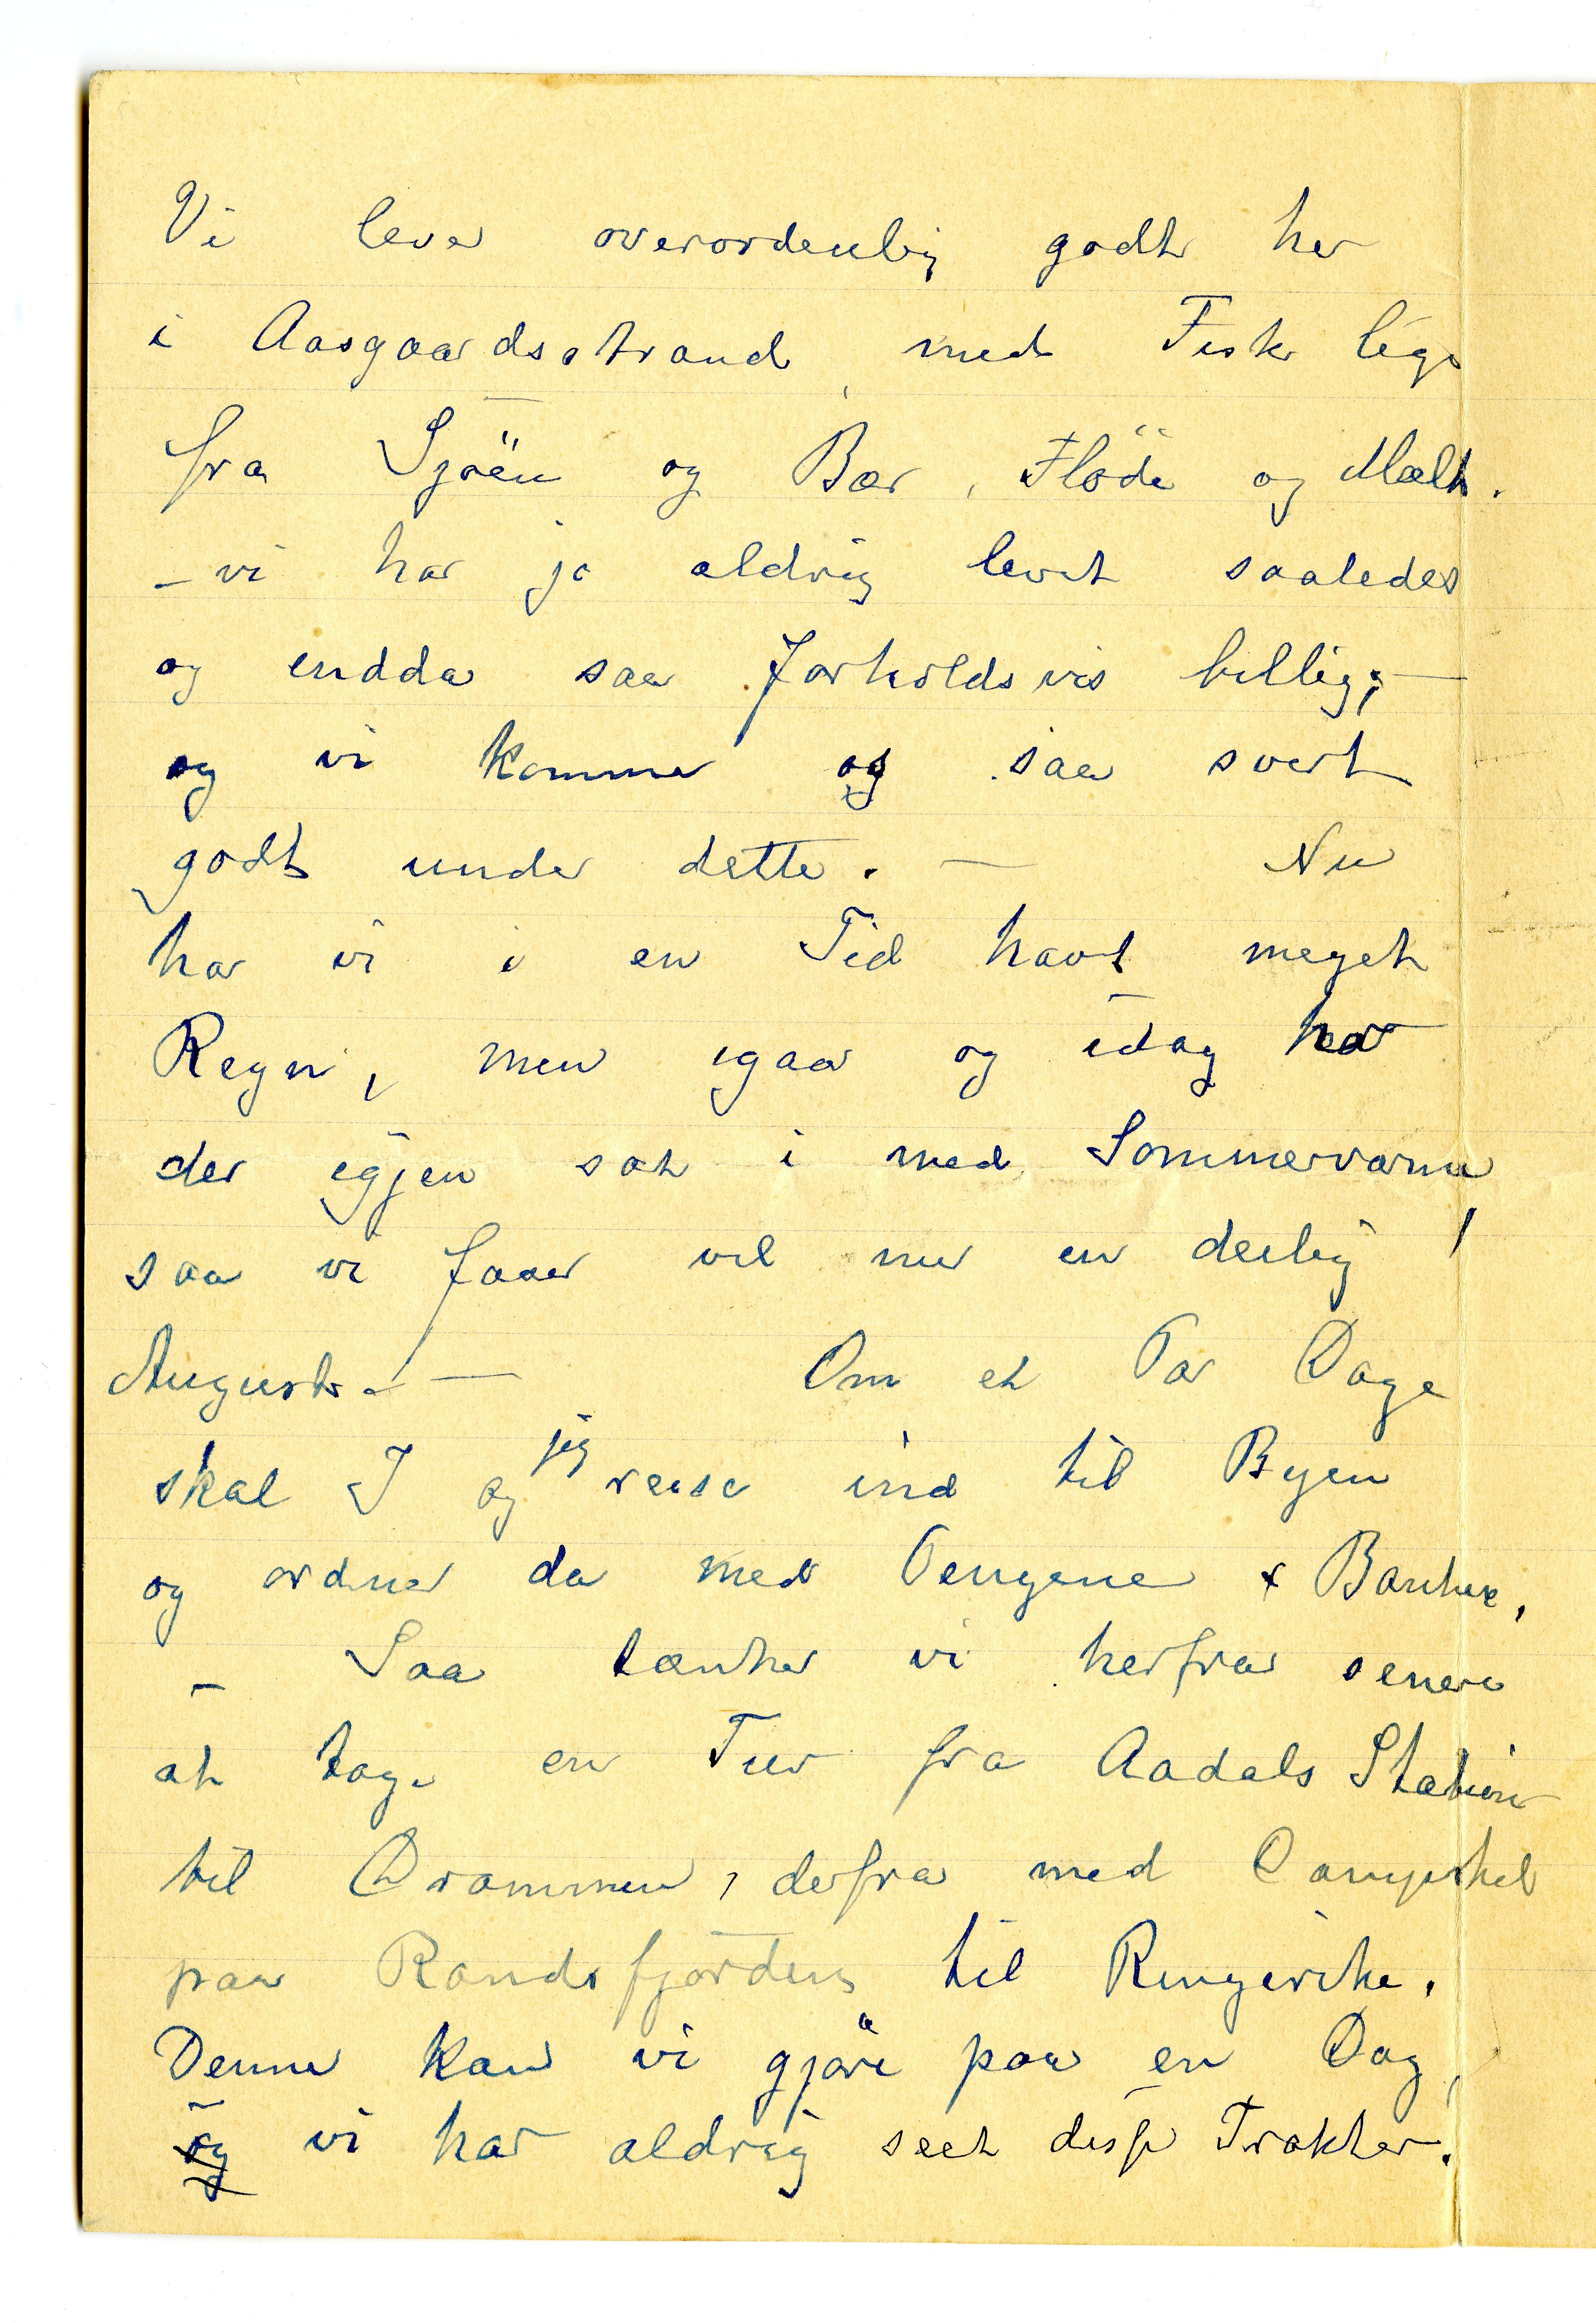 Vi lever overordenlig godt her
i Aasgaardsstrand, med Fisk lige
fra Sjöen og Bær, Flöde og Mælk.
– vi har jo aldrig levet saaledes
og endda saa forholdsvis billig; –
og vi kommer og saa svært
godt under dette. – Nu
har vi i en Tid havt meget
Regn, men igaar og idag har
der igjen sat i med Sommervarme
saa vi faaer vel nu en deilig
August. – Om et Par Dage
skal I og jeg reise ind til Byen
og ordner da med Pengene & Banken.
– Saa tænker vi herfra senere
at tage en Tur fra Aadals Station
til Drammen, derfra med Dampskib
paa Randsfjorden til Ringerike.
Denne kan vi gjöre paa en Dag,
og vi har aldrig seet disse Trakter.